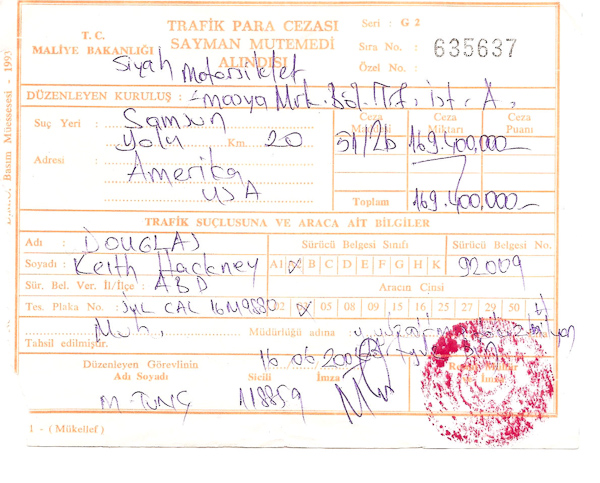 T. C.
MALİYE BAKANLIĞI
TRAFİK PARA CEZASI
SAYMAN MUTEMEDİ
ALINDISI
Seri : G 2
Sıra No. : 635637
Özel No. :
Siyah Motorsiklet
DÜZENLEYEN KURULUŞ : Amasya Mrk. Böl. Trf. İst. A.
Suç Yeri : Samsun
yolu Km. 20
Adresi : Amerika
USA
Ceza Maddesi Ceza Miktarı Ceza Puanı
51/2b 169.400,000
Toplam 169.400,000
TRAFİK SUÇLUSUNA VE ARACA AİT BİLGİLER
Adı : DOUGLAS
Sürücü Belgesi Sınıfı Sürücü Belgesi No.
Soyadı : Keith Hackney
A1 A2 B C D E F G H K 92009
Sür. Bel. Ver. İl/İlçe : ABD
Aracın Cinsi
Tes. Plaka No. : CAL 16M9880
02 05 08 09 15 16 27 29 50
Muh. Müdürlüğü adına
Tahsil edilmiştir.
Düzenleyen Görevlinin
Adı Soyadı Sicili İmza
M. TUNÇ 118859
1 - ( Mükellef )
Basım Müessesesi - 1993